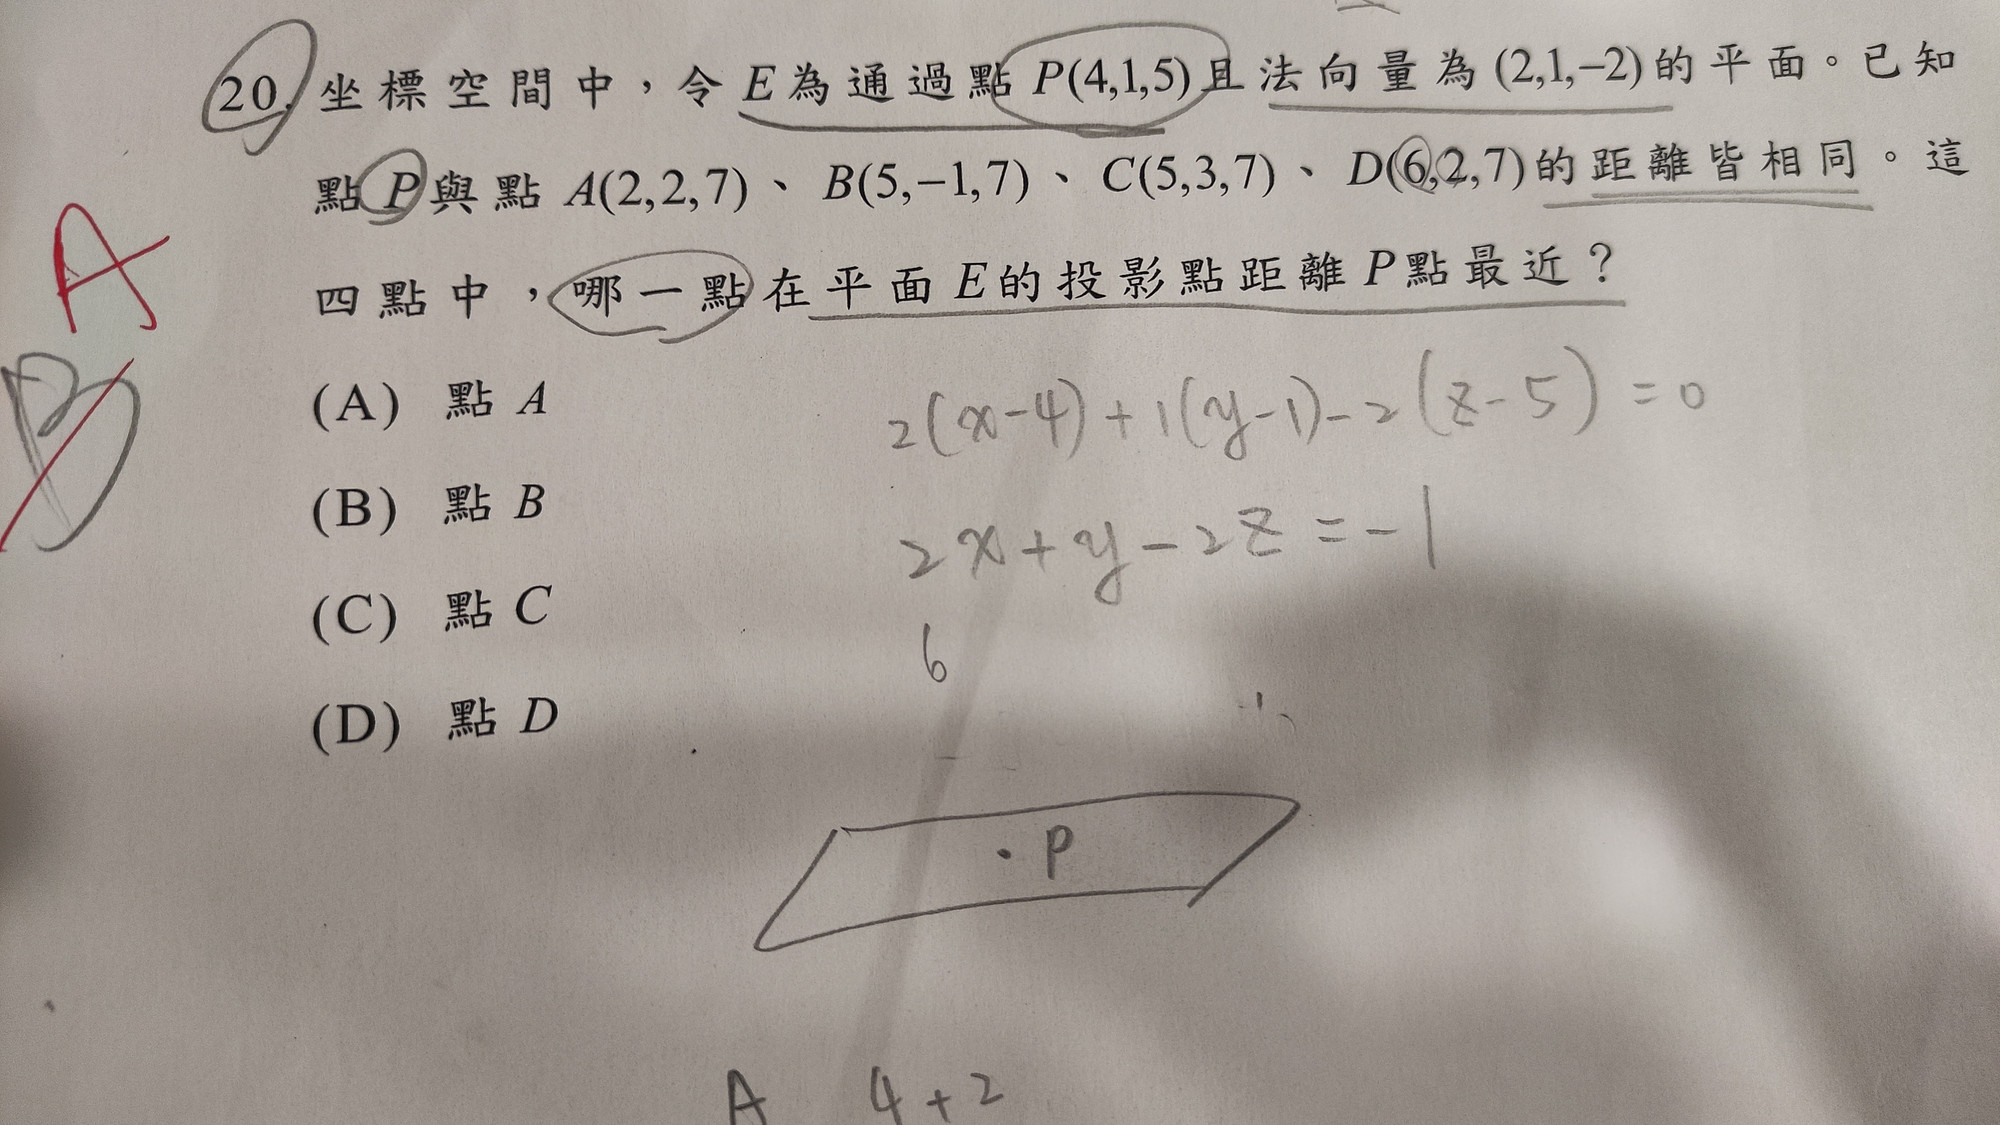 20. 坐標空間中，令E為通過點P(4,1,5)且法向量為(2,1,−2)的平面。已知
點P與點A(2,2,7)、B(5,−1,7)、C(5,3,7)、D(6,2,7)的距離皆相同。這
四點中，哪一點在平面E的投影點距離P點最近？
A
B
(A) 點A
2(x-4)+1(y-1)-2(z-5)=0
(B) 點B
2x+y-2z=-1
(C) 點C
6
(D) 點D
P
A 4+2